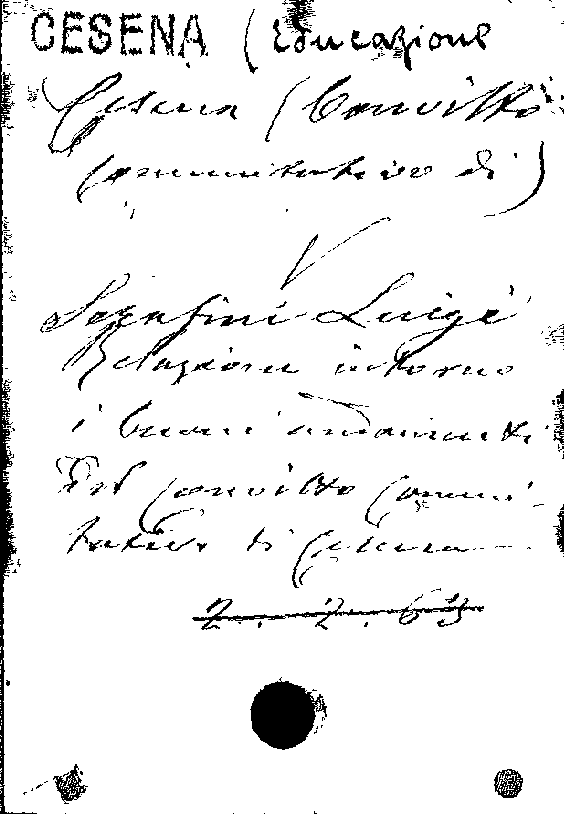 CESENA (Educazione
Cesena (Convitto
Comunitativo di)
V
Serafini Luigi
Relazione intorno
i buoni andamenti
del Convitto Comuni-
tativo di Cesena
2. 2. 63